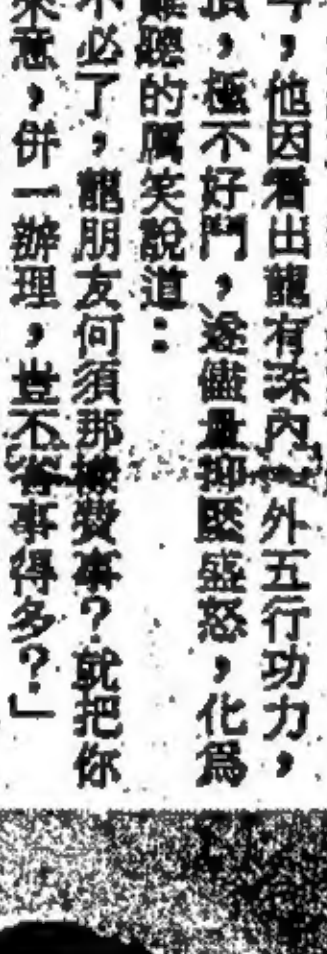 ，他因看出龍有珠內、外五行功力，
頂，極不好鬥，遂儘量抑壓盛怒，化爲
難聽的厲笑說道：
不必了，龍朋友何須那樣費事？就把你
來意，併一辦理，豈不省事得多？」